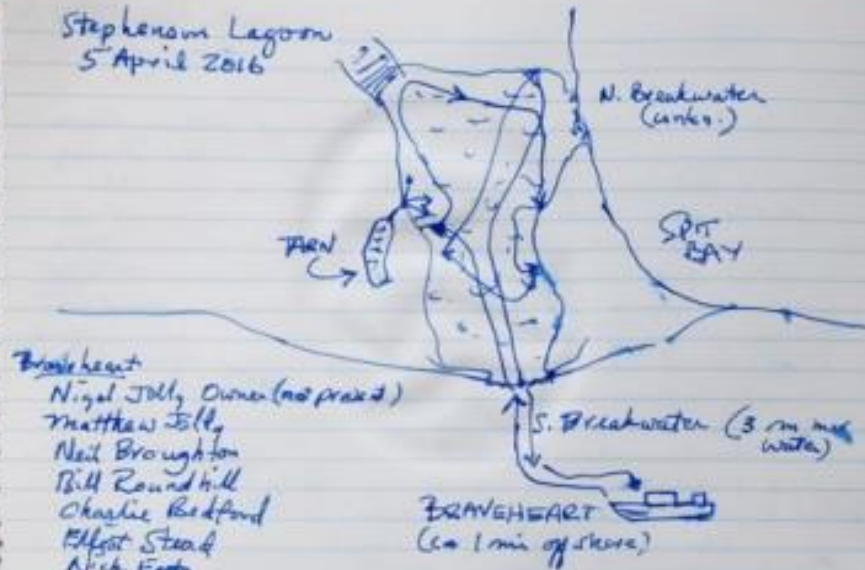 Stephenson Lagoon
5 April 2016
N. Breakwater
TARN
SPIT
BAY
Braveheart
Nigel Jolly Owner (not present)
Matthew Jolly
Neil Broughton
Bill Roundhill
Charlie Bedford
Elliot Stead
S. Breakwater (3 m
water)
BRAVEHEART
1 offshore)